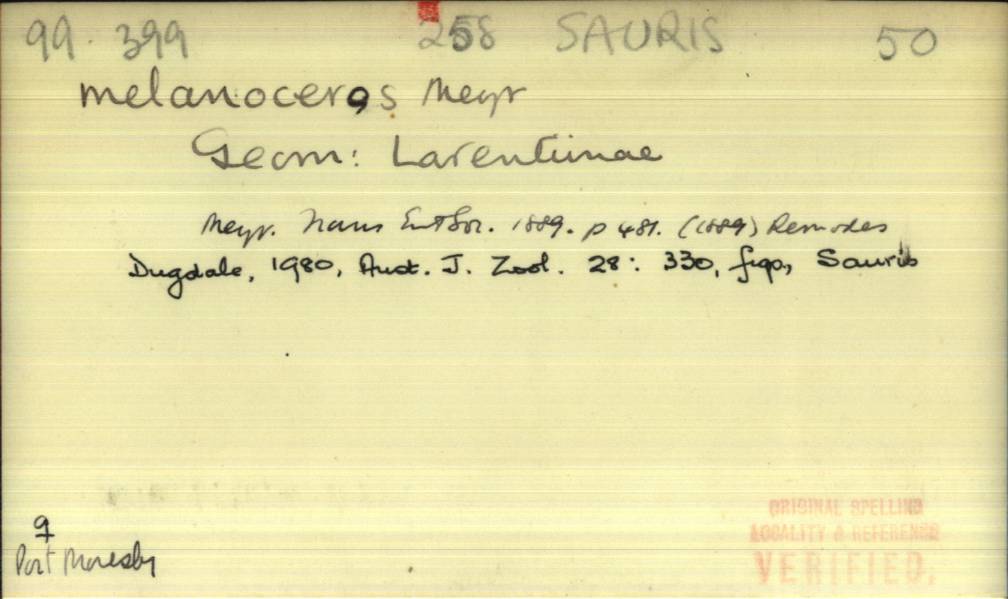 99. 399 258 SAURIS 50
melanoceros Meyr
Geom: Larentiinae
Meyr. Trans Ent Soc. 1889. p 481. (1889) Remodes
Dugdale, 1980, Aust. J. Zool. 28: 330, figs, Sauris
♀
Port Moresby
ORIGINAL SPELLING
LOCALITY & REFERENCE
VERIFIED.